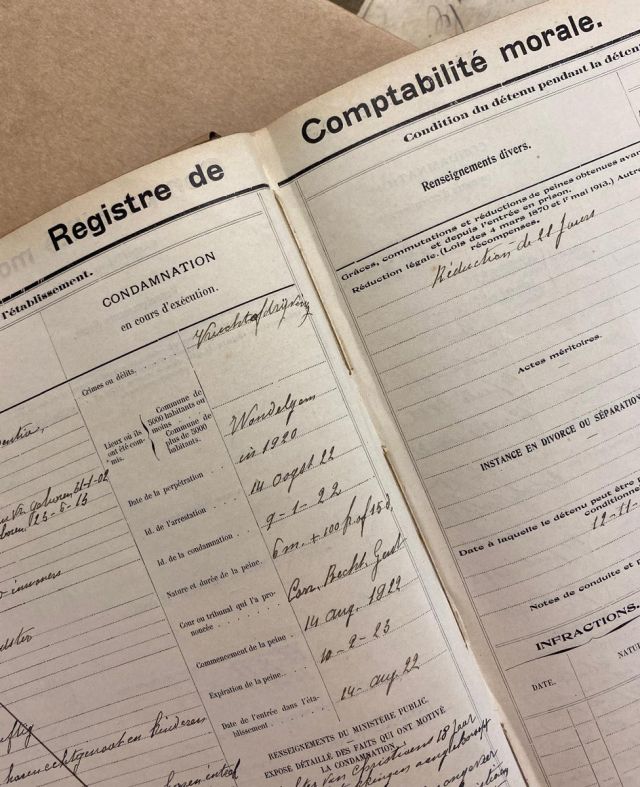 Registre de
l'établissement.
CONDAMNATION
en cours d'exécution.
Crimes ou délits.
Vruchtafdrijving
Lieux où ils
ont été com-
mis.
Commune de
5000 habitants ou
moins
Commune de
plus de 5000
habitants.
Wondelgem
Date de la perpétration
in 1920
Id. de l'arrestation
14 Oogst 22
Id. de la condamnation
9-1-22
Nature et durée de la peine.
6 m. + 100 f. of 15 d.
Cour ou tribunal qui l'a pro-
noncée
Corr. Recht. Gent
Commencement de la peine
14 aug. 1922
Expiration de la peine
10-2-23
Date de l'entrée dans l'éta-
blissement
14-aug. 22
geboren 31-1-02
23-5-13
inwoners
echtgenoot en kinderen
RENSEIGNEMENTS DU MINISTÈRE PUBLIC.
EXPOSÉ DÉTAILLÉ DES FAITS QUI ONT MOTIVÉ
LA CONDAMNATION.
van Christiaens 18 Jaar
Comptabilité morale.
Condition du détenu pendant la déten
Renseignements divers.
Grâces, commutations et réductions de peines obtenues avan
et depuis l'entrée en prison.
Réduction légale. (Lois des 4 mars 1870 et 1r mai 1913.) Autre
récompenses.
Réduction de 22 jours
Actes méritoires.
INSTANCE EN DIVORCE OU SÉPARATION
Date à laquelle le détenu peut être
conditionne
12-11-
Notes de conduite et
INFRACTIONS.
DATE.
NATU